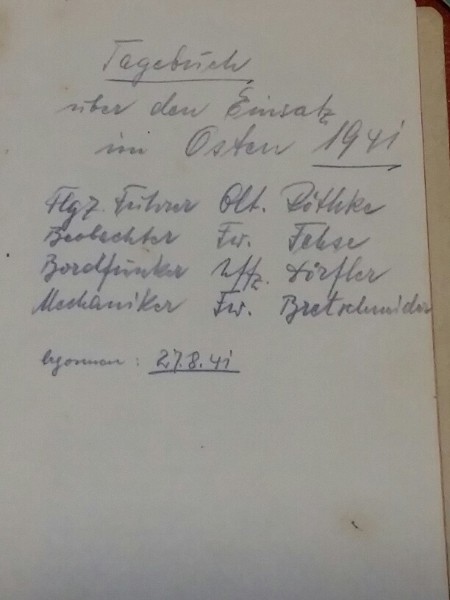 Tagebuch
über den Einsatz
im Osten 1941
Flgz. Führer Olt. Röthke
Beobachter Fw. Fehse
Bordfunker Uffz. Dörfler
Mechaniker Fw. Bretschneider
begonnen: 27.8.41